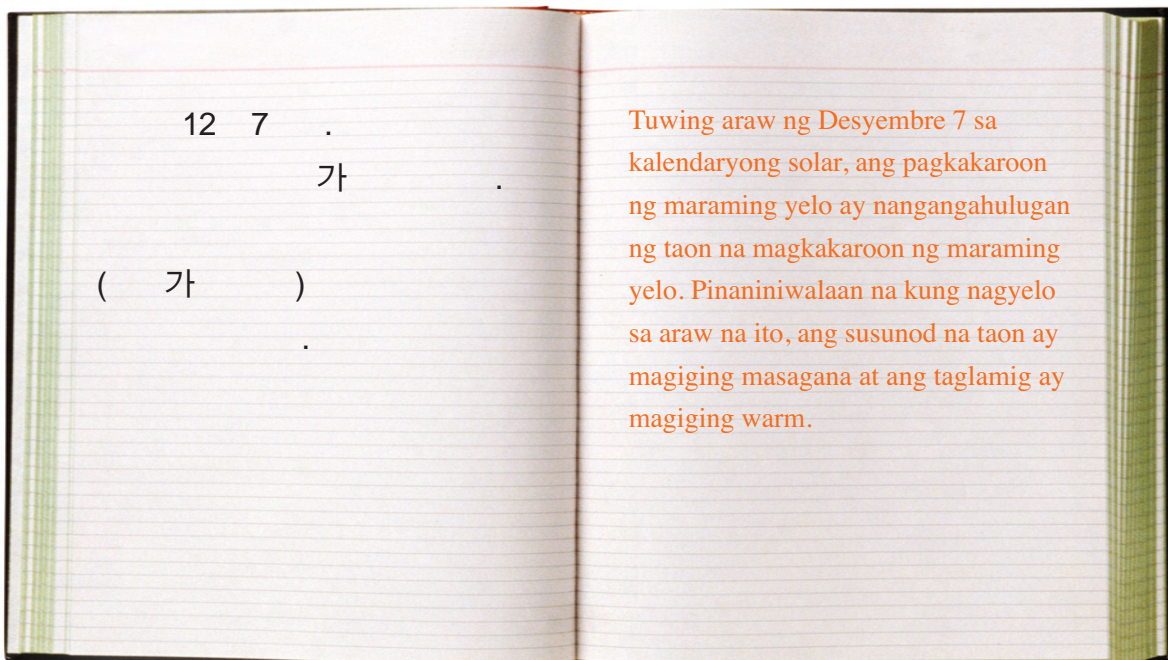 12 7 .
가 .
( 가 )
.
Tuwing araw ng Desyembre 7 sa
kalendaryong solar, ang pagkakaroon
ng maraming yelo ay nangangahulugan
ng taon na magkakaroon ng maraming
yelo. Pinaniniwalaan na kung nagyelo
sa araw na ito, ang susunod na taon ay
magiging masagana at ang taglamig ay
magiging warm.